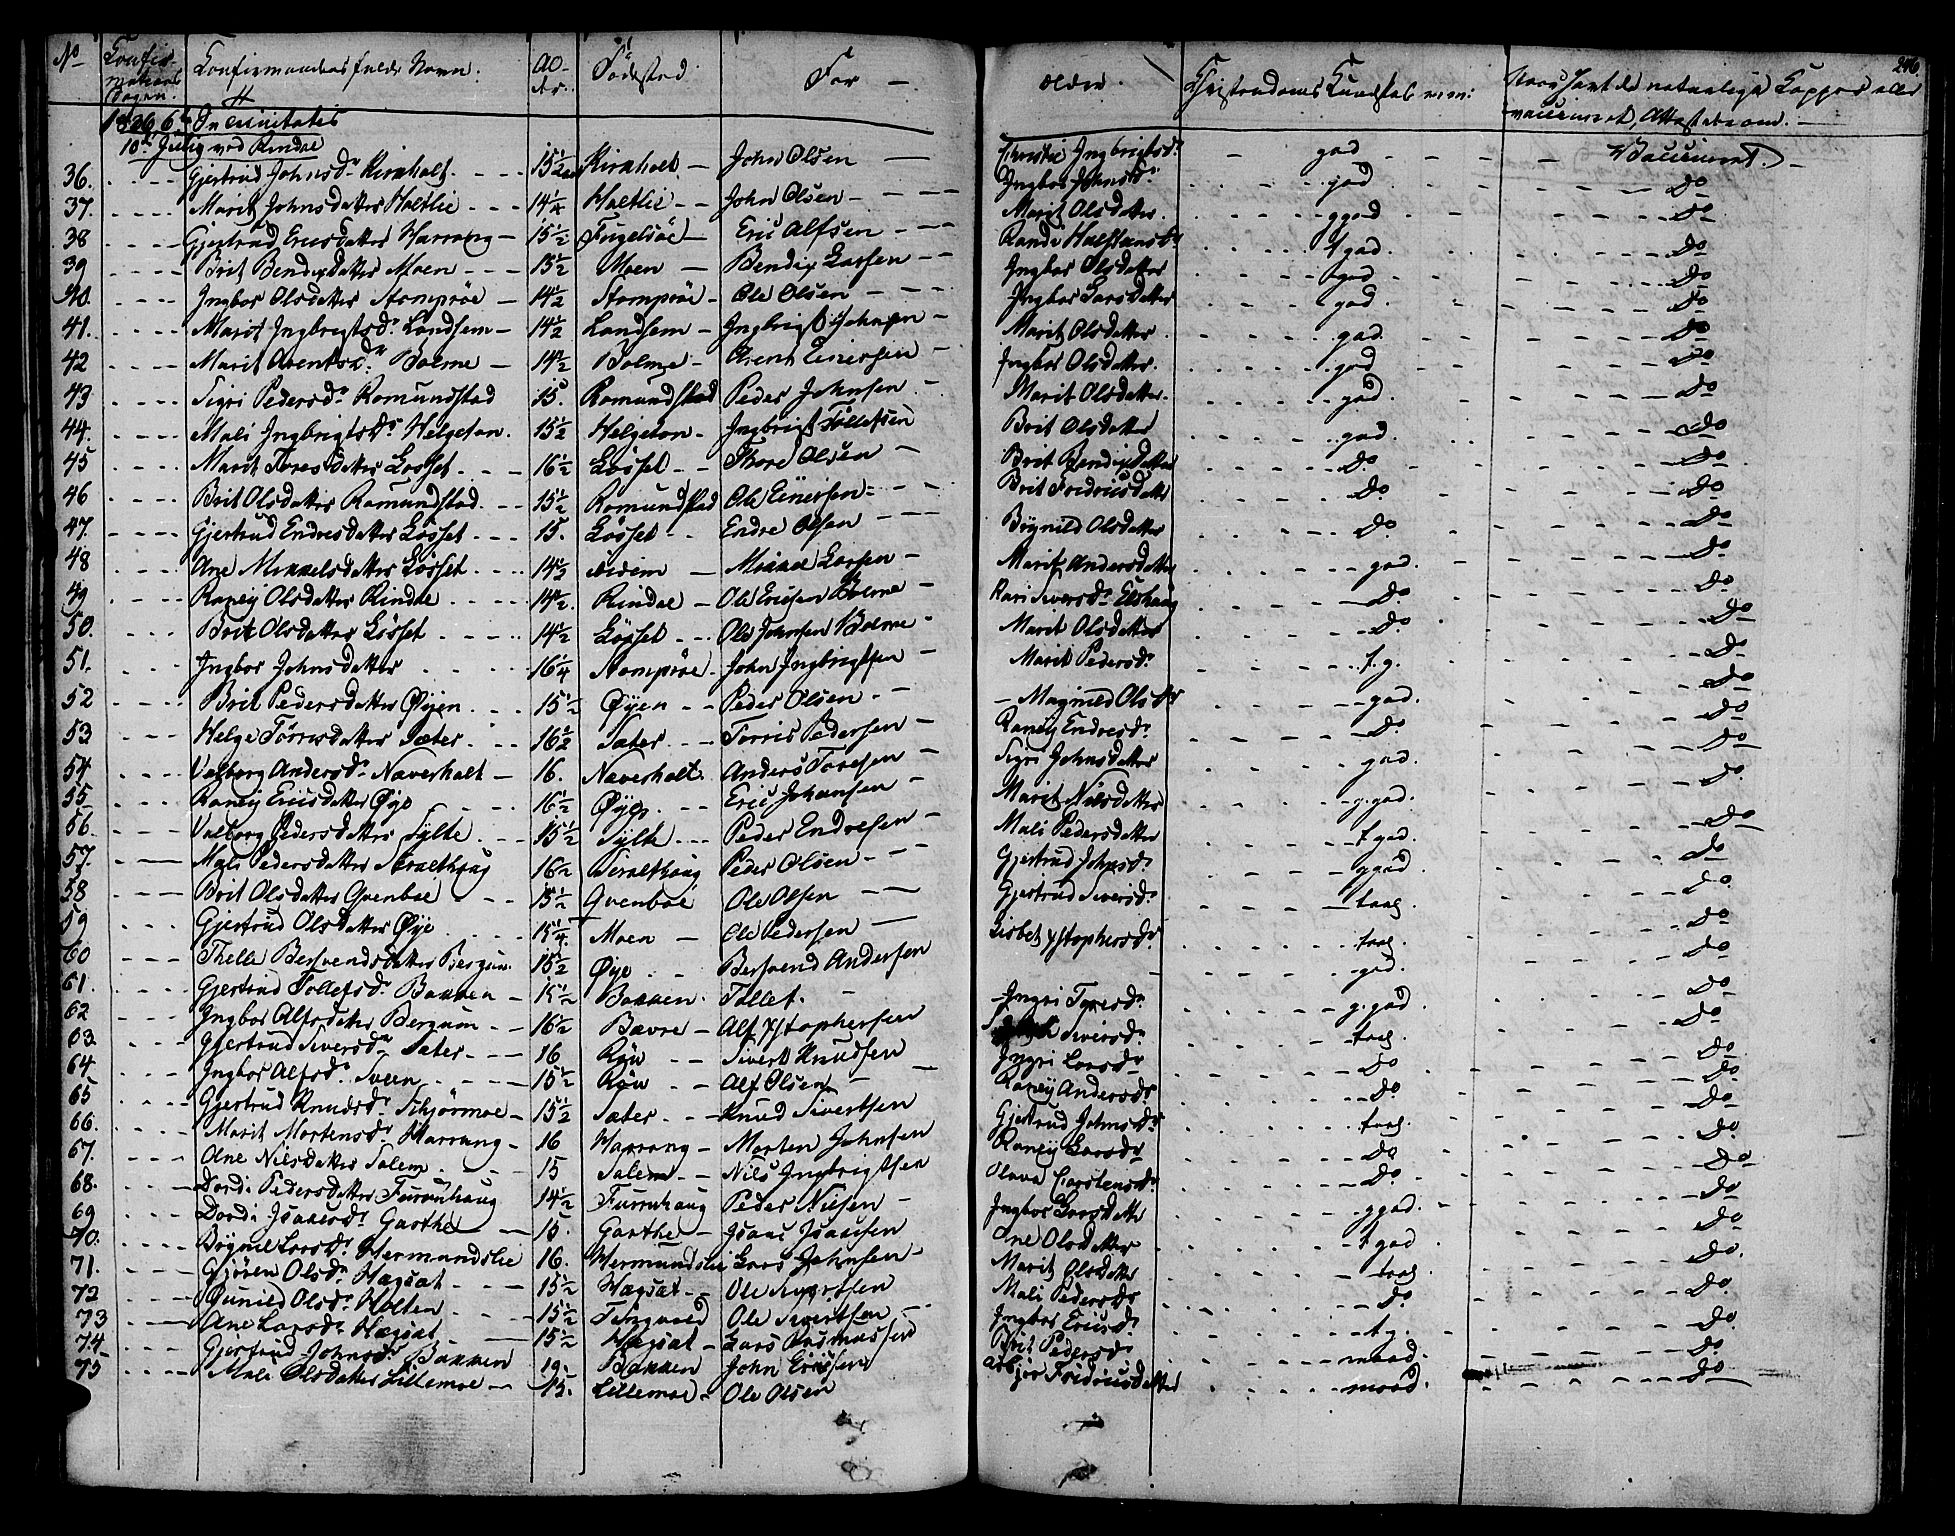 No Confirmations Dagen. Confirmandens fulde Navn. Alder. Fødested For- ældre. Christendoms Kundskab m.m: 246.
1826 6te Dn Trinitatis
10de July ved Rindal
36. Gjertrud Johnsdr Kirkholt 15 1/2 Kirkholt John Olsen Christie Ingbrigtsdr god Vaccineret
37. Marit Johnsdatter Holtlie 14 1/4 Holtlie John Olsen Ingbor Johnsdr god Do
38 Gjertrud Ericsdatter Harrang 15 1/2 Fugelsøe Eric Alfsen Marit Olsdatter ggod Do
39 Brit Bendixdatter Moen 15 1/2 Moen Bendix Larsen Randi Halstensdr tgod Do
40. Ingbor Olsdatter Stomprøe 14 1/2 Stomprøe Ole Olsen Ingbor Olsdatter tgod Do
41. Marit Ingbrigtsdr Landsem 14 1/2 Landsem Ingbrigt Johnsen Ingbor Larsdatter god Do
42 Marit Arentsdr Bolme 14 1/2 Bolme Arent Einersen Marit Olsdatter god Do
43 Sigri Pedersdr Romundstad 15. Romundstad Peder Johnsen Ingbor Olsdatter god Do
44. Mali Ingbrigtsdr Helgeton 15 1/2 Helgeton Ingbrigt Tollefsen Marit Olsdatter god Do
45 Marit Toresdatter Løsset 16 1/2 Løsset Thore Olsen Brit Olsdatter god Do
46 Brit Olsdatter Romundstad 15 1/2 Romundstad Ole Einersen Brit Bendixdatter Do Do
47. Gjertrud Endresdatter Løsset 15. Løsset Endre Olsen Brit Fredricsdatter Do Do
48 Ane Mikkelsdatter Løsset 14 1/2 ibidem Mikkel Larsen Bøgnild Olsdatter Do Do
49 Raney Olsdatter Rindal 14 1/2 Rindal Ole Ericsen Bolme Marit Andersdatter god Do
50. Brit Olsdatter Løsset 14 1/2 Løsset Ole Johnsen Bolme Kari Siversdr Elshaug Do Do
51. Ingbor Johnsdatter 16 1/4 Stomprøe John Ingbrigtsen Marit Olsdatter Do Do
52 Brit Pedersdatter Øyen 15 1/2 Øyen Peder Olsen Marit Pedersdr t.g. Do
53 Helge Torrisdatter Sæter 16 1/2 Sæter Torris Pedersen Magnild Olsdr god Do
54. Valborg Andersdr Naverholt 16. Naverholt Anders Toresen Raney Endresdr Do Do
55 Raney Ericsdatter Øye 16 1/2 Øye Eric Johansen Sigri Johnsdatter god. Do
56. Valborg Pedersdatter Sylte 15 1/2 Sylte Peder Endresen Marit Nilsdatter g.god. Do
57. Mali Pedersdatter Seralthaug 16 1/2 Seralthaug Peder Olsen Mali Pedersdatter tgod Do
58 Brit Olsdatter Qvenboe 15 1/2 Qvenboe Ole Olsen Gjertrud Johnsdr ggod Do
59 Gjertrud Olsdatter Øye 15 1/4 Moen Ole Pedersen Gjertrud Siversdr taal. Do
60 Thelle Bersvendsdatter Bergum 15 1/2 Øye Bersvend Andersen Lisbet Xstophersdr taal. Do
61. Gjertrud Tollefsdr Bakken 15 1/2 Bakken Tollef. god. Do
62 Ingbor Alfsdatter Bergum 16 1/2 Bævre Alf Xstophersen Ingri Toresdr g.god Do
63. Gjertrud Siversdr Sæter 16 Røv Sivert Knudsen Siversdr taal Do
64. Ingbor Alfsdr Sveen 15 1/2 Røv Alf Olsen Ingri Larsdr Do Do
65 Gjertrud Knudsdr Schjørmoe 15 1/2 Sæter Knud Sivertsen Raney Andersdr Do Do
66. Marit Mortensdr Harrang 16 Harrang Morten Johnsen Gjertrud Johnsdr taal. Do
67. Ane Nilsdatter Solem 15 Solem Nils Ingbrigtsen Raney Larsdr Do Do
68. Dordi Pedersdatter Furruhaug 14 1/2 Furruhaug Peder Nilsen Olava Carstensdr Do Do
69 Dordi Isaacsdr Garthe 15. Garthe Isaac Isacsen Ingbor Larsdatter ggod. Do
70. Bøgnil Larsdr Hermundslie 16. Hermundslie Lars Johnsen Ane Olsdatter tgod Do
71. Gjøren Olsdr Hægsæt 15 1/2 Hægsæt Ole Marit Olsdatter taal Do
72 Gunild Olsdr Holten 15 1/2 Tingvold Ole Sivertsen Mali Pedersdr Do Do
73 Ane Larsdr Hægsæt 15 1/2 Hægsæt Lars Rasmussen Ingbor Ericsdr t.g. Do
74. Gjertrud Johnsdr Bakken 19. Bakken John Ericksen Brit Pedersdr maad. Do
75 Mali Olsdatter Lillemoe 15. Lillemoe Ole Olsen Asbjør Fredricsdatter maad. Do